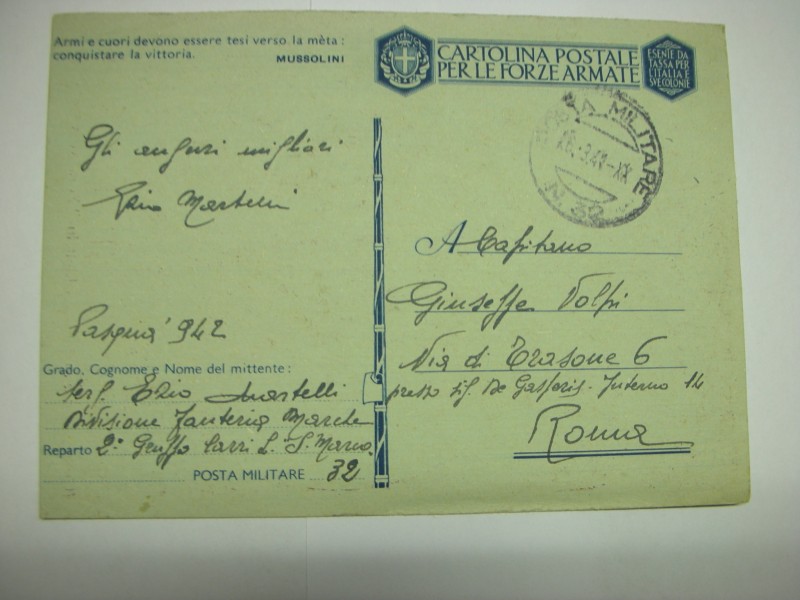 Armi e cuori devono essere tesi verso la mèta :
conquistare la vittoria. MUSSOLINI
CARTOLINA POSTALE
PER LE FORZE ARMATE
ESENTE DA
TASSA PER
L'ITALIA E
SVE COLONIE
POSTA MILITARE
3.42-XX
N. 32
Gli auguri migliori
Ezio Martelli
Pasqua 942
A Capitano
Giuseppe Volpi
Via di Trasone 6
presso Sig. De Gasperis - Interno 14
Roma
Grado, Cognome e Nome del mittente :
Serg. Ezio Martelli
Divisione Fanteria Marche
Reparto 2º Gruppo Carri L. S. Marco
POSTA MILITARE 32